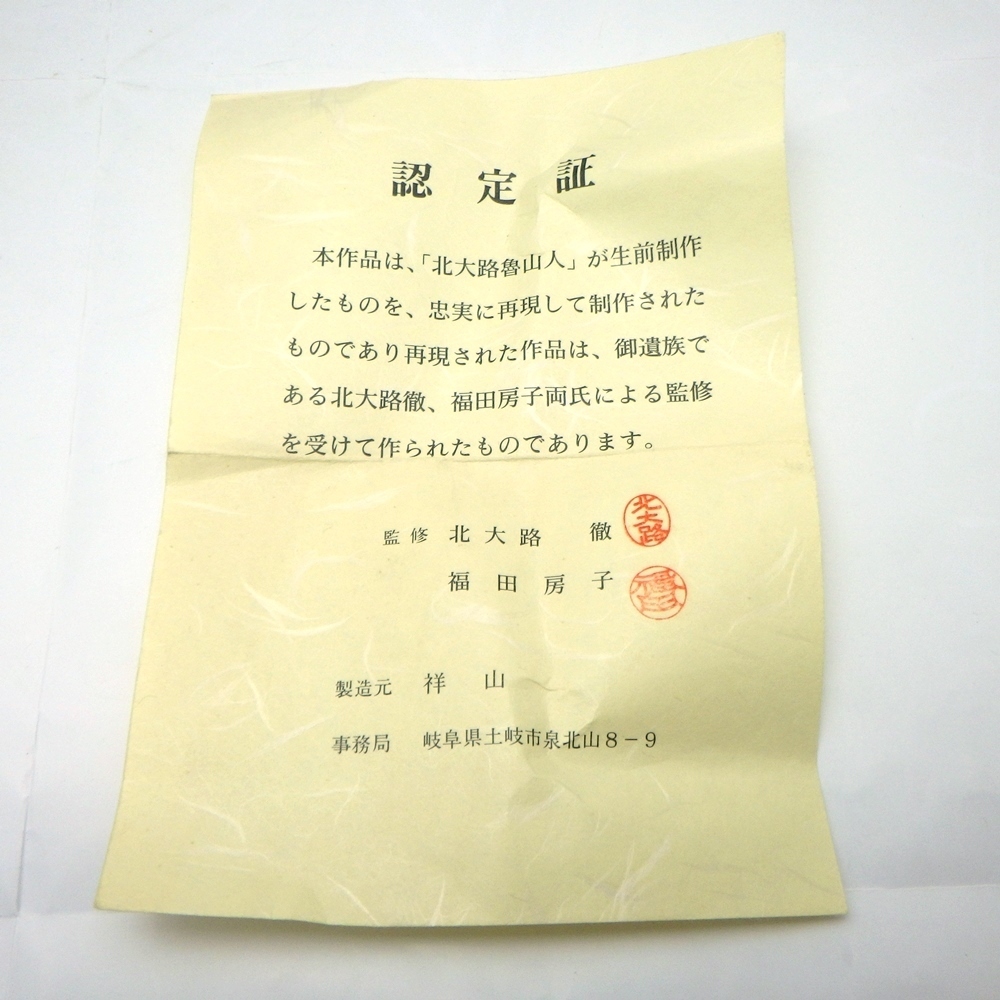 認定証
本作品は、「北大路魯山人」が生前制作
したものを、忠実に再現して制作された
ものであり再現された作品は、御遺族で
ある北大路徹、福田房子両氏による監修
を受けて作られたものであります。
監修 北大路 徹 北大路
福田房子 福田
製造元 祥山
事務局 岐阜県土岐市泉北山8−9